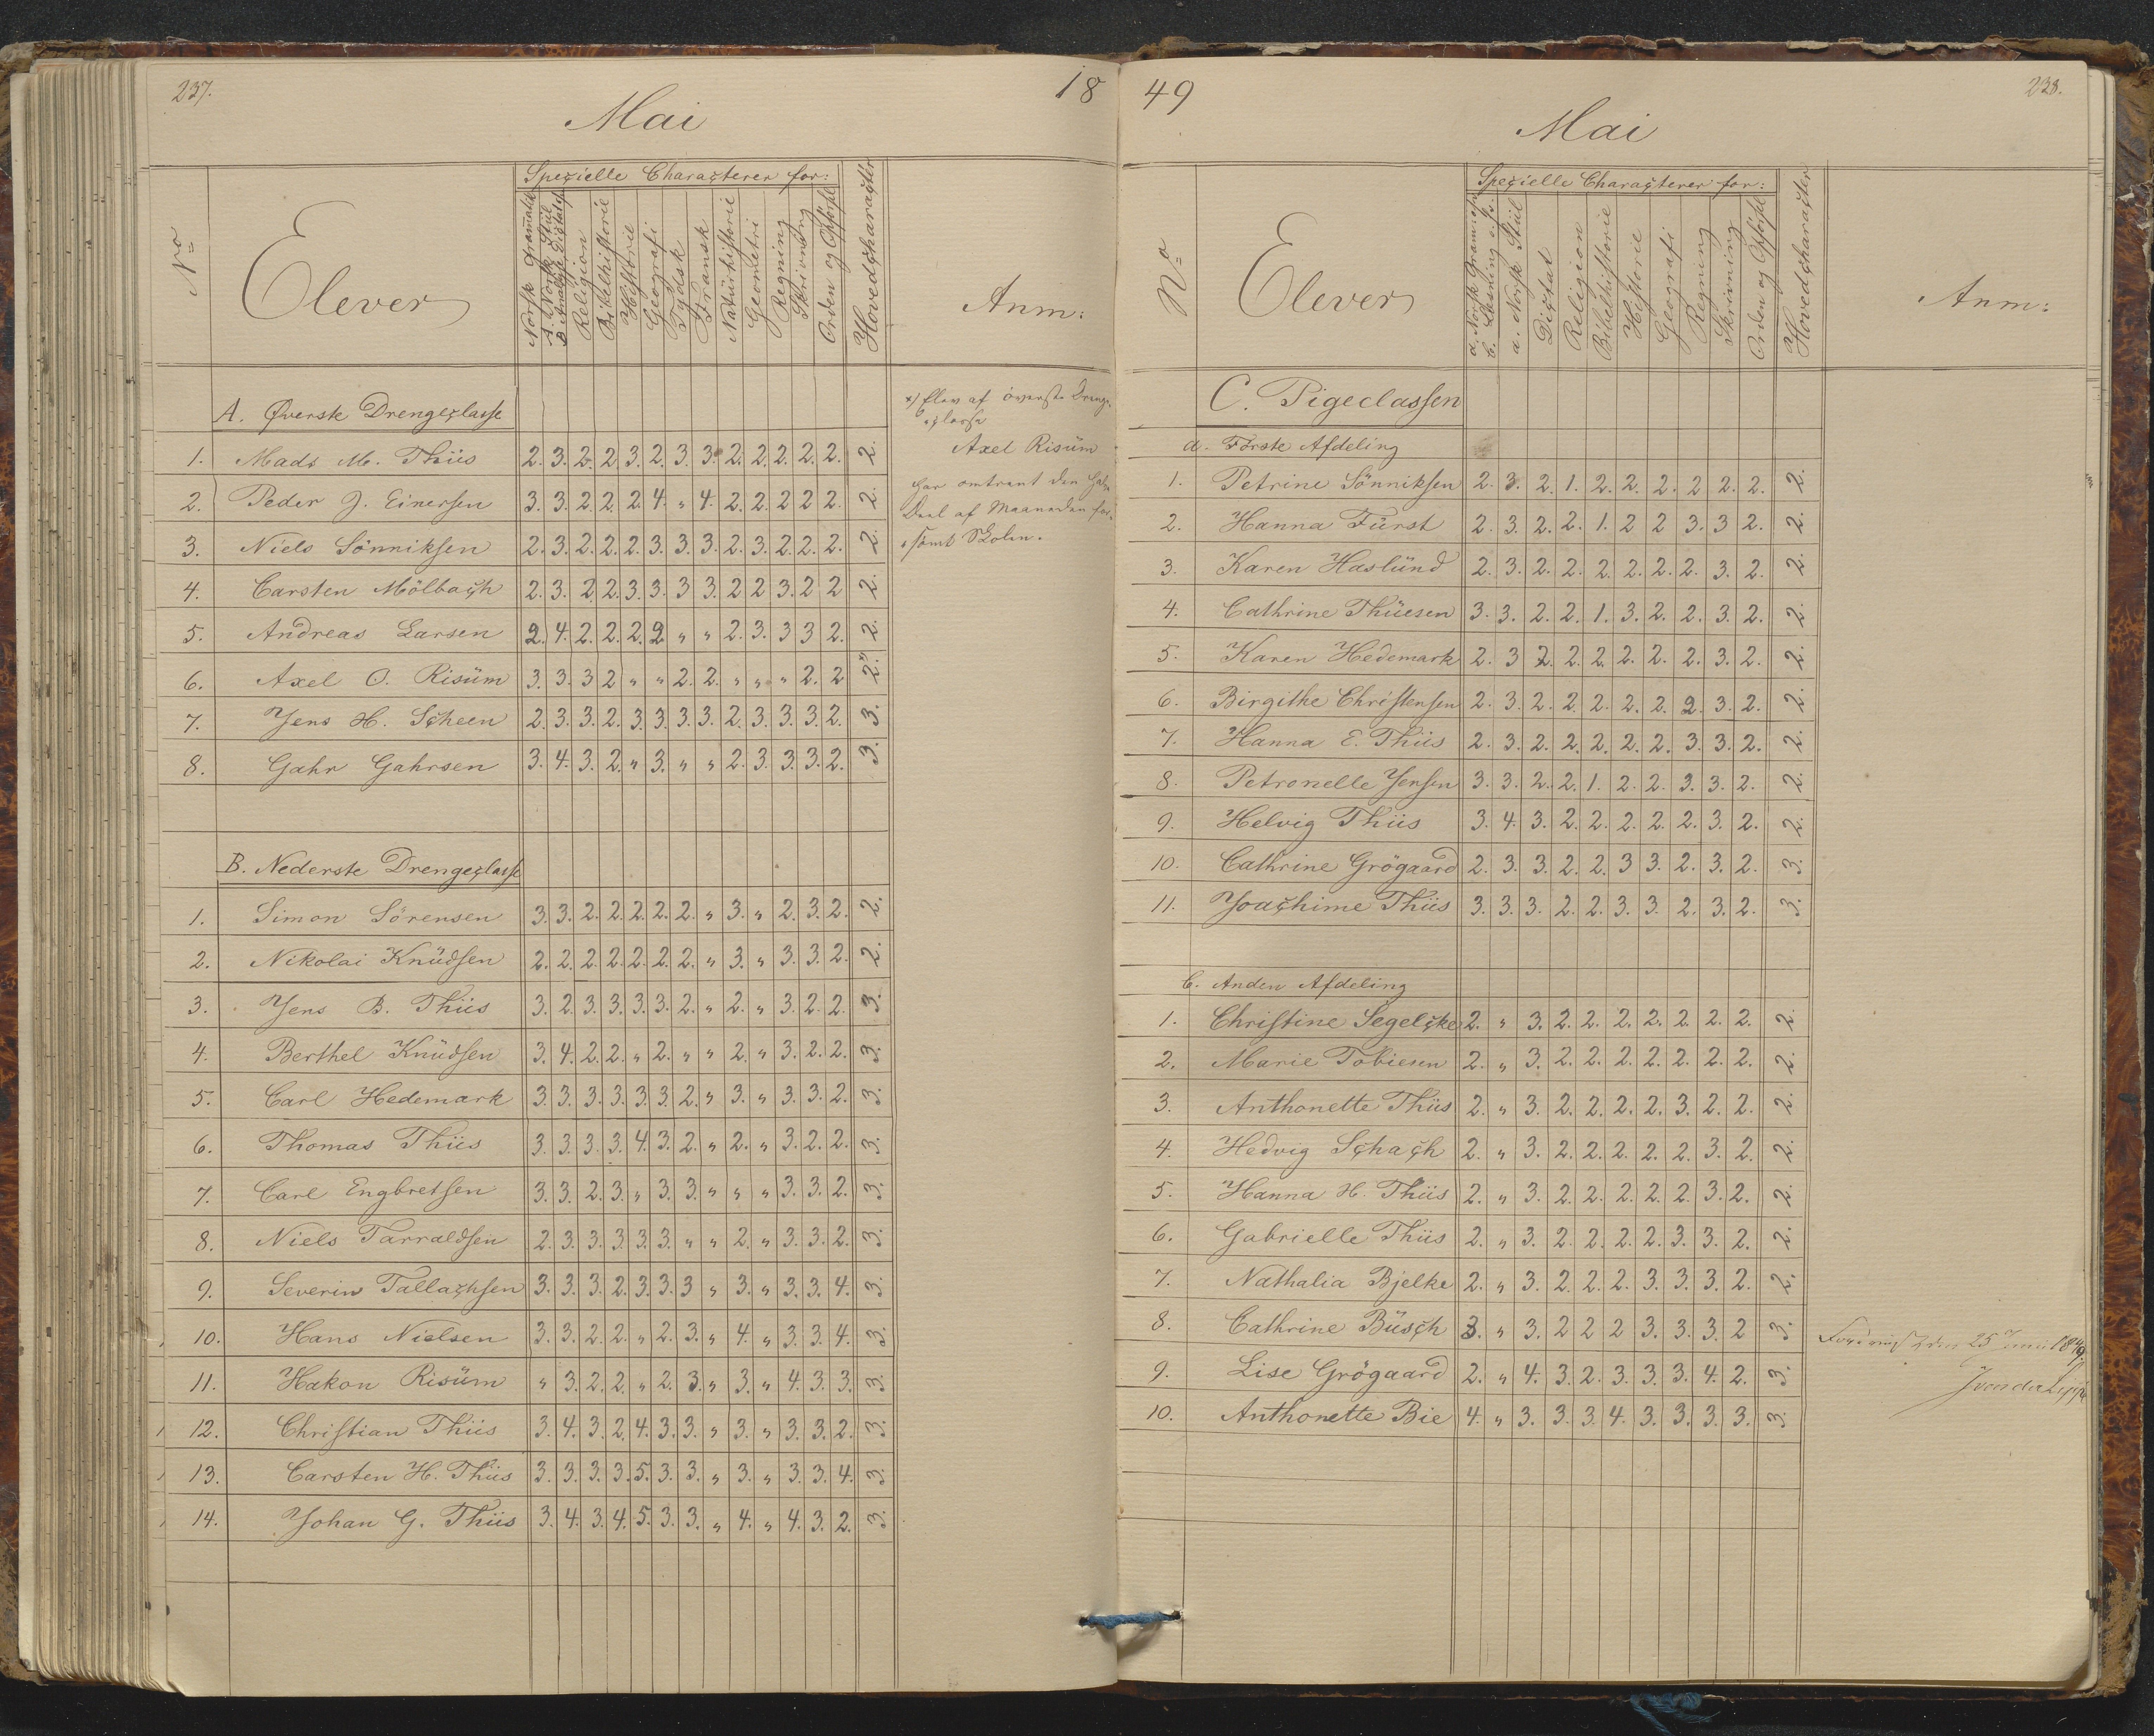 237.
18
Mai
Specielle Characterer for:
No
Elever
Norsk Grammatik
A. Norsk Stiil
B. Analyse Dictat
Religion
Bibelhistorie
Historie
Geografi
Tydsk
Fransk
Naturhistorie
Geometri
Regning
Skrivning
Orden og Opførsel
Hovedcharacter
Anm:
A. Øverste Drengeclasse
1. Mads M. Thiis 2. 3. 2. 2. 3. 2. 3. 3. 2. 2. 2. 2. 2. 2.
2. Peder J. Einersen 3. 3. 2. 2. 2. 4. " 4. 2. 2. 2. 2. 2. 2.
3. Niels Sönniksen 2. 3. 2. 2. 2. 3. 3. 3. 2. 3. 2. 2. 2. 2.
4. Carsten Mölbach 2. 3. 2 2. 3. 3. 3 3. 2 2 3. 2 2 2.
5. Andreas Larsen 2. 4. 2. 2. 2. 2 " " 2. 3. 3 3 2. 2.
6. Axel O. Risüm 3. 3. 3 2 " " 2. 2. " " " 2. 2 2. x)
7. Jens H. Scheen 2. 3. 3. 2. 3. 3. 3. 3. 2. 3. 3. 3. 2. 3.
8. Gahr Gahrsen 3. 4. 3. 2. " 3. " " 2. 3. 3. 3. 2. 3.
x) Elev af överste Drenge-
classe
Axel Risüm
har omtrent den halve
Deel af Maaneden for-
sömt Skolen.
B. Nederste Drengeclasse
1. Simon Sörensen 3. 3. 2. 2. 2. 2. 2. " 3. " 2. 3. 2. 2.
2. Nikolai Knüdsen 2. 2. 2. 2. 2. 2. 2. " 3. " 3. 3. 2. 2.
3. Jens B. Thiis 3. 2. 3. 3. 3. 3. 2. " 2. " 3. 2. 2. 3.
4. Berthel Knüdsen 3. 4. 2. 2. " 2. " " 2. " 3. 2. 2. 3.
5. Carl Hedemark 3. 3. 3. 3. 3. 3. 2. " 3. " 3. 3. 2. 3.
6. Thomas Thiis 3. 3. 3. 3. 4. 3. 2. " 2. " 3. 2. 2. 3.
7. Carl Engbretsen 3. 3. 2. 3. " 3. 3. " " " 3. 3. 2. 3.
8. Niels Tarraldsen 2. 3. 3. 3. 3. 3. " " 2. " 3. 3. 2. 3.
9. Severin Tallachsen 3. 3. 3. 2. 3. 3. 3 " 3. " 3. 3. 4. 3.
10. Hans Nielsen 3. 3. 2. 2. " 2. 3. " 4. " 3. 3. 4. 3.
11. Hakon Risüm " 3. 2. 2. " 2. 3. " 3. " 4. 3. 3. 3.
12. Christian Thiis 3. 4. 3. 2. 4. 3. 3. " 3. " 3. 3. 2. 3.
13. Carsten H. Thiis 3. 3. 3. 3. 5. 3. 3. " 3. " 3. 3. 4. 3.
14. Johan G. Thiis 3. 4. 3. 4. 5. 3. 3. " 4. " 4. 3. 2. 3.
49
238.
Mai
Specielle Characterer for:
No
Elever
a. Norsk Gram:
b. Læsning
a. Norsk Stiil
Dictat
Religion
Bibelhistorie
Historie
Geografi
Regning
Skrivning
Orden og Opförsel
Hovedcharacter
Anm:
C. Pigeclassen
a. Förste Afdeling
1. Petrine Sönniksen 2. 3. 2. 1. 2. 2. 2. 2 2. 2. 2.
2. Hanna Fürst 2. 3. 2. 2. 1. 2 2 3. 3 2. 2.
3. Karen Haslünd 2. 3. 2. 2. 2. 2. 2. 2. 3. 2. 2.
4. Cathrine Thüesen 3. 3. 2. 2. 1. 3. 2. 2. 3. 2. 2.
5. Karen Hedemark 2. 3 2. 2. 2. 2. 2. 2. 3. 2. 2.
6. Birgithe Christensen 2. 3. 2. 2. 2. 2. 2. 2. 3. 2. 2.
7. Hanna E. Thiis 2. 3. 2. 2. 2. 2. 2. 3. 3. 2. 2.
8. Petronelle Jensen 3. 3. 2. 2. 1. 2. 2. 3. 3. 2. 2.
9. Helvig Thiis 3. 4. 3. 2. 2. 2. 2. 2. 3. 2. 2.
10. Cathrine Grögaard 2. 3. 3. 2. 2. 3 3. 2. 3. 2. 3.
11. Joachime Thiis 3. 3. 3. 2. 2. 3. 3. 2. 3. 2. 3.
b. Anden Afdeling
1. Christine Segelcke 2. " 3. 2. 2. 2. 2. 2. 2. 2. 2.
2. Marie Tobiesen 2. " 3. 2. 2. 2. 2. 2. 2. 2. 2.
3. Anthonette Thiis 2. " 3. 2. 2. 2. 2. 3. 2. 2. 2.
4. Hedvig Schach 2. " 3. 2. 2. 2. 2. 2. 3. 2. 2.
5. Hanna H. Thiis 2. " 3. 2. 2. 2. 2. 2. 3. 2. 2.
6. Gabrielle Thiis 2. " 3. 2. 2. 2. 2. 3. 3. 2. 2.
7. Nathalia Bjelke 2. " 3. 2. 2. 2. 3. 3. 3. 2. 2.
8. Cathrine Büsch 3. " 3. 2 2 2 3. 3. 3. 2 3.
9. Lise Grögaard 2. " 4. 3. 2. 3. 3. 3. 4. 2. 3.
10. Anthonette Bie 4. " 3. 3. 3. 4. 3. 3. 3. 3. 3.
den 25 Juni 1849.